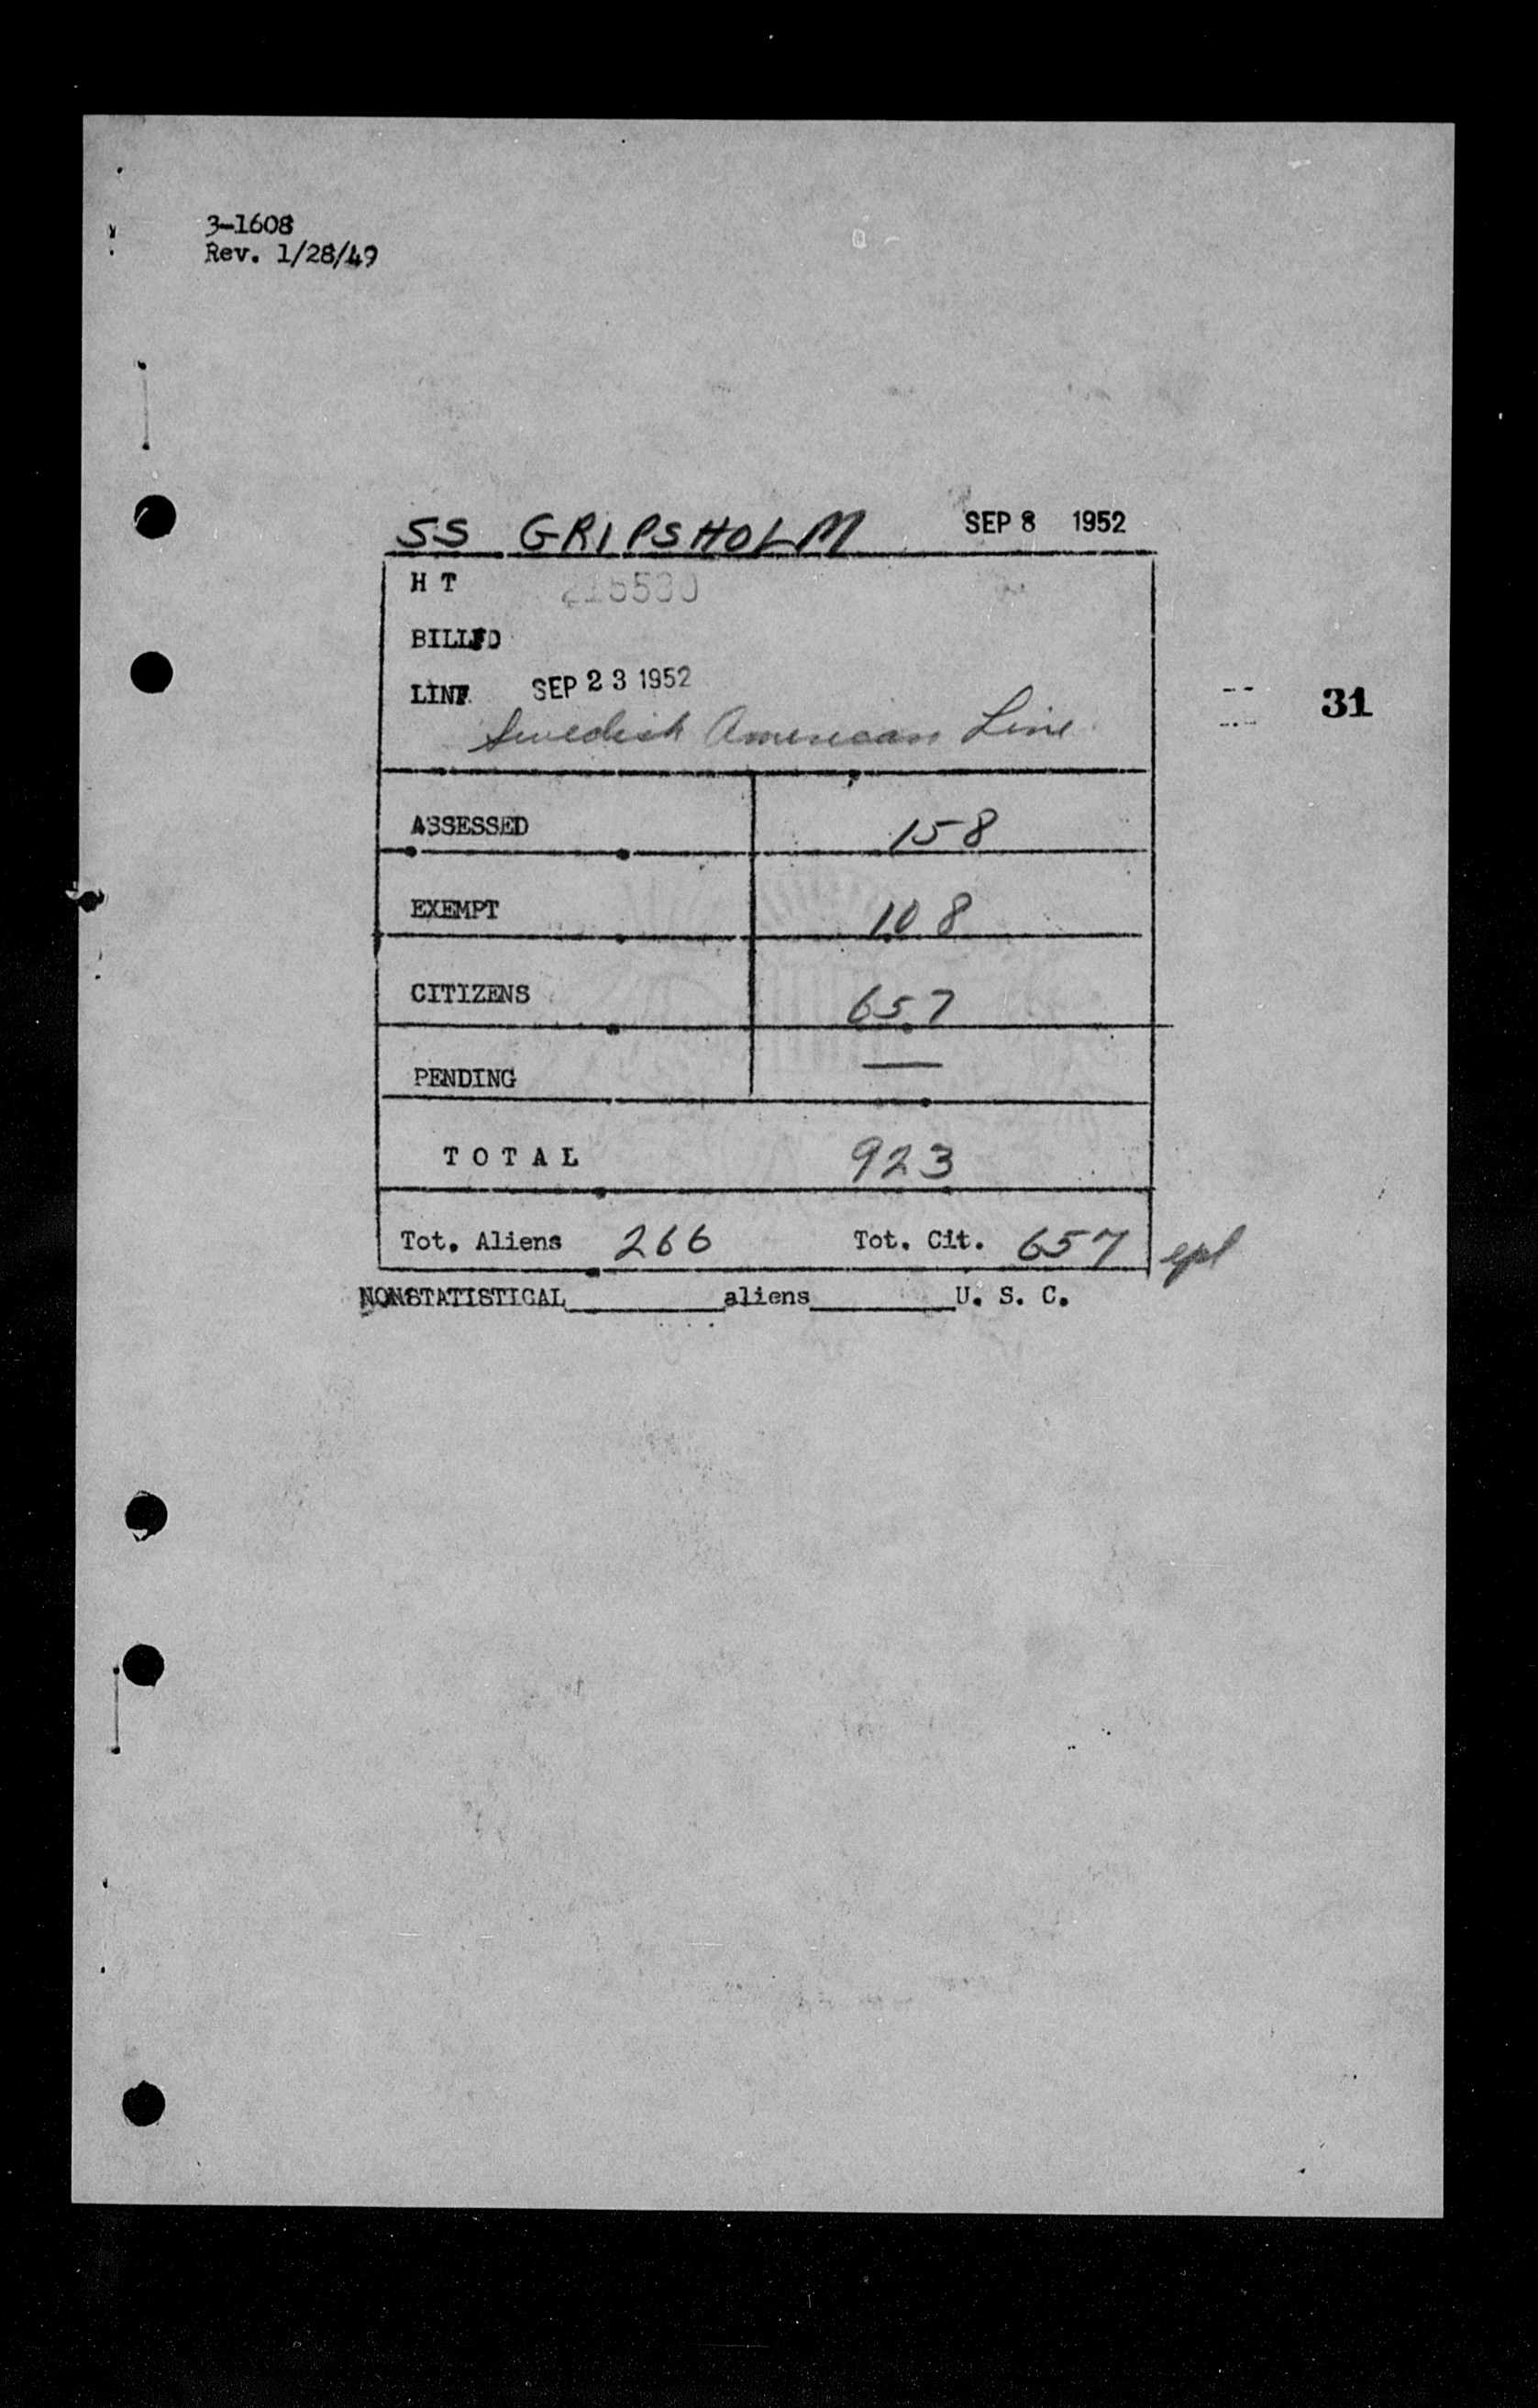 3-1608
Rev. 1/28/49
SS GRIPSHOLM SEP 8 1952
H T
BILLED
LINE SEP 23 1952
Swedish American Line
31
ASSESSED 158
EXEMPT 108
CITIZENS 657
PENDING —
TOTAL 923
Tot. Aliens 266 Tot. Cit. 657
NONSTATISTICAL________aliens________U. S. C.